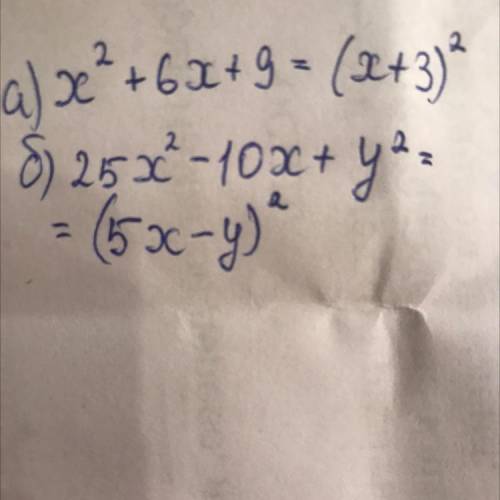 а) x² + 6x + 9 = (x+3)²
б) 25x² - 10x + y² =
= (5x - y)²